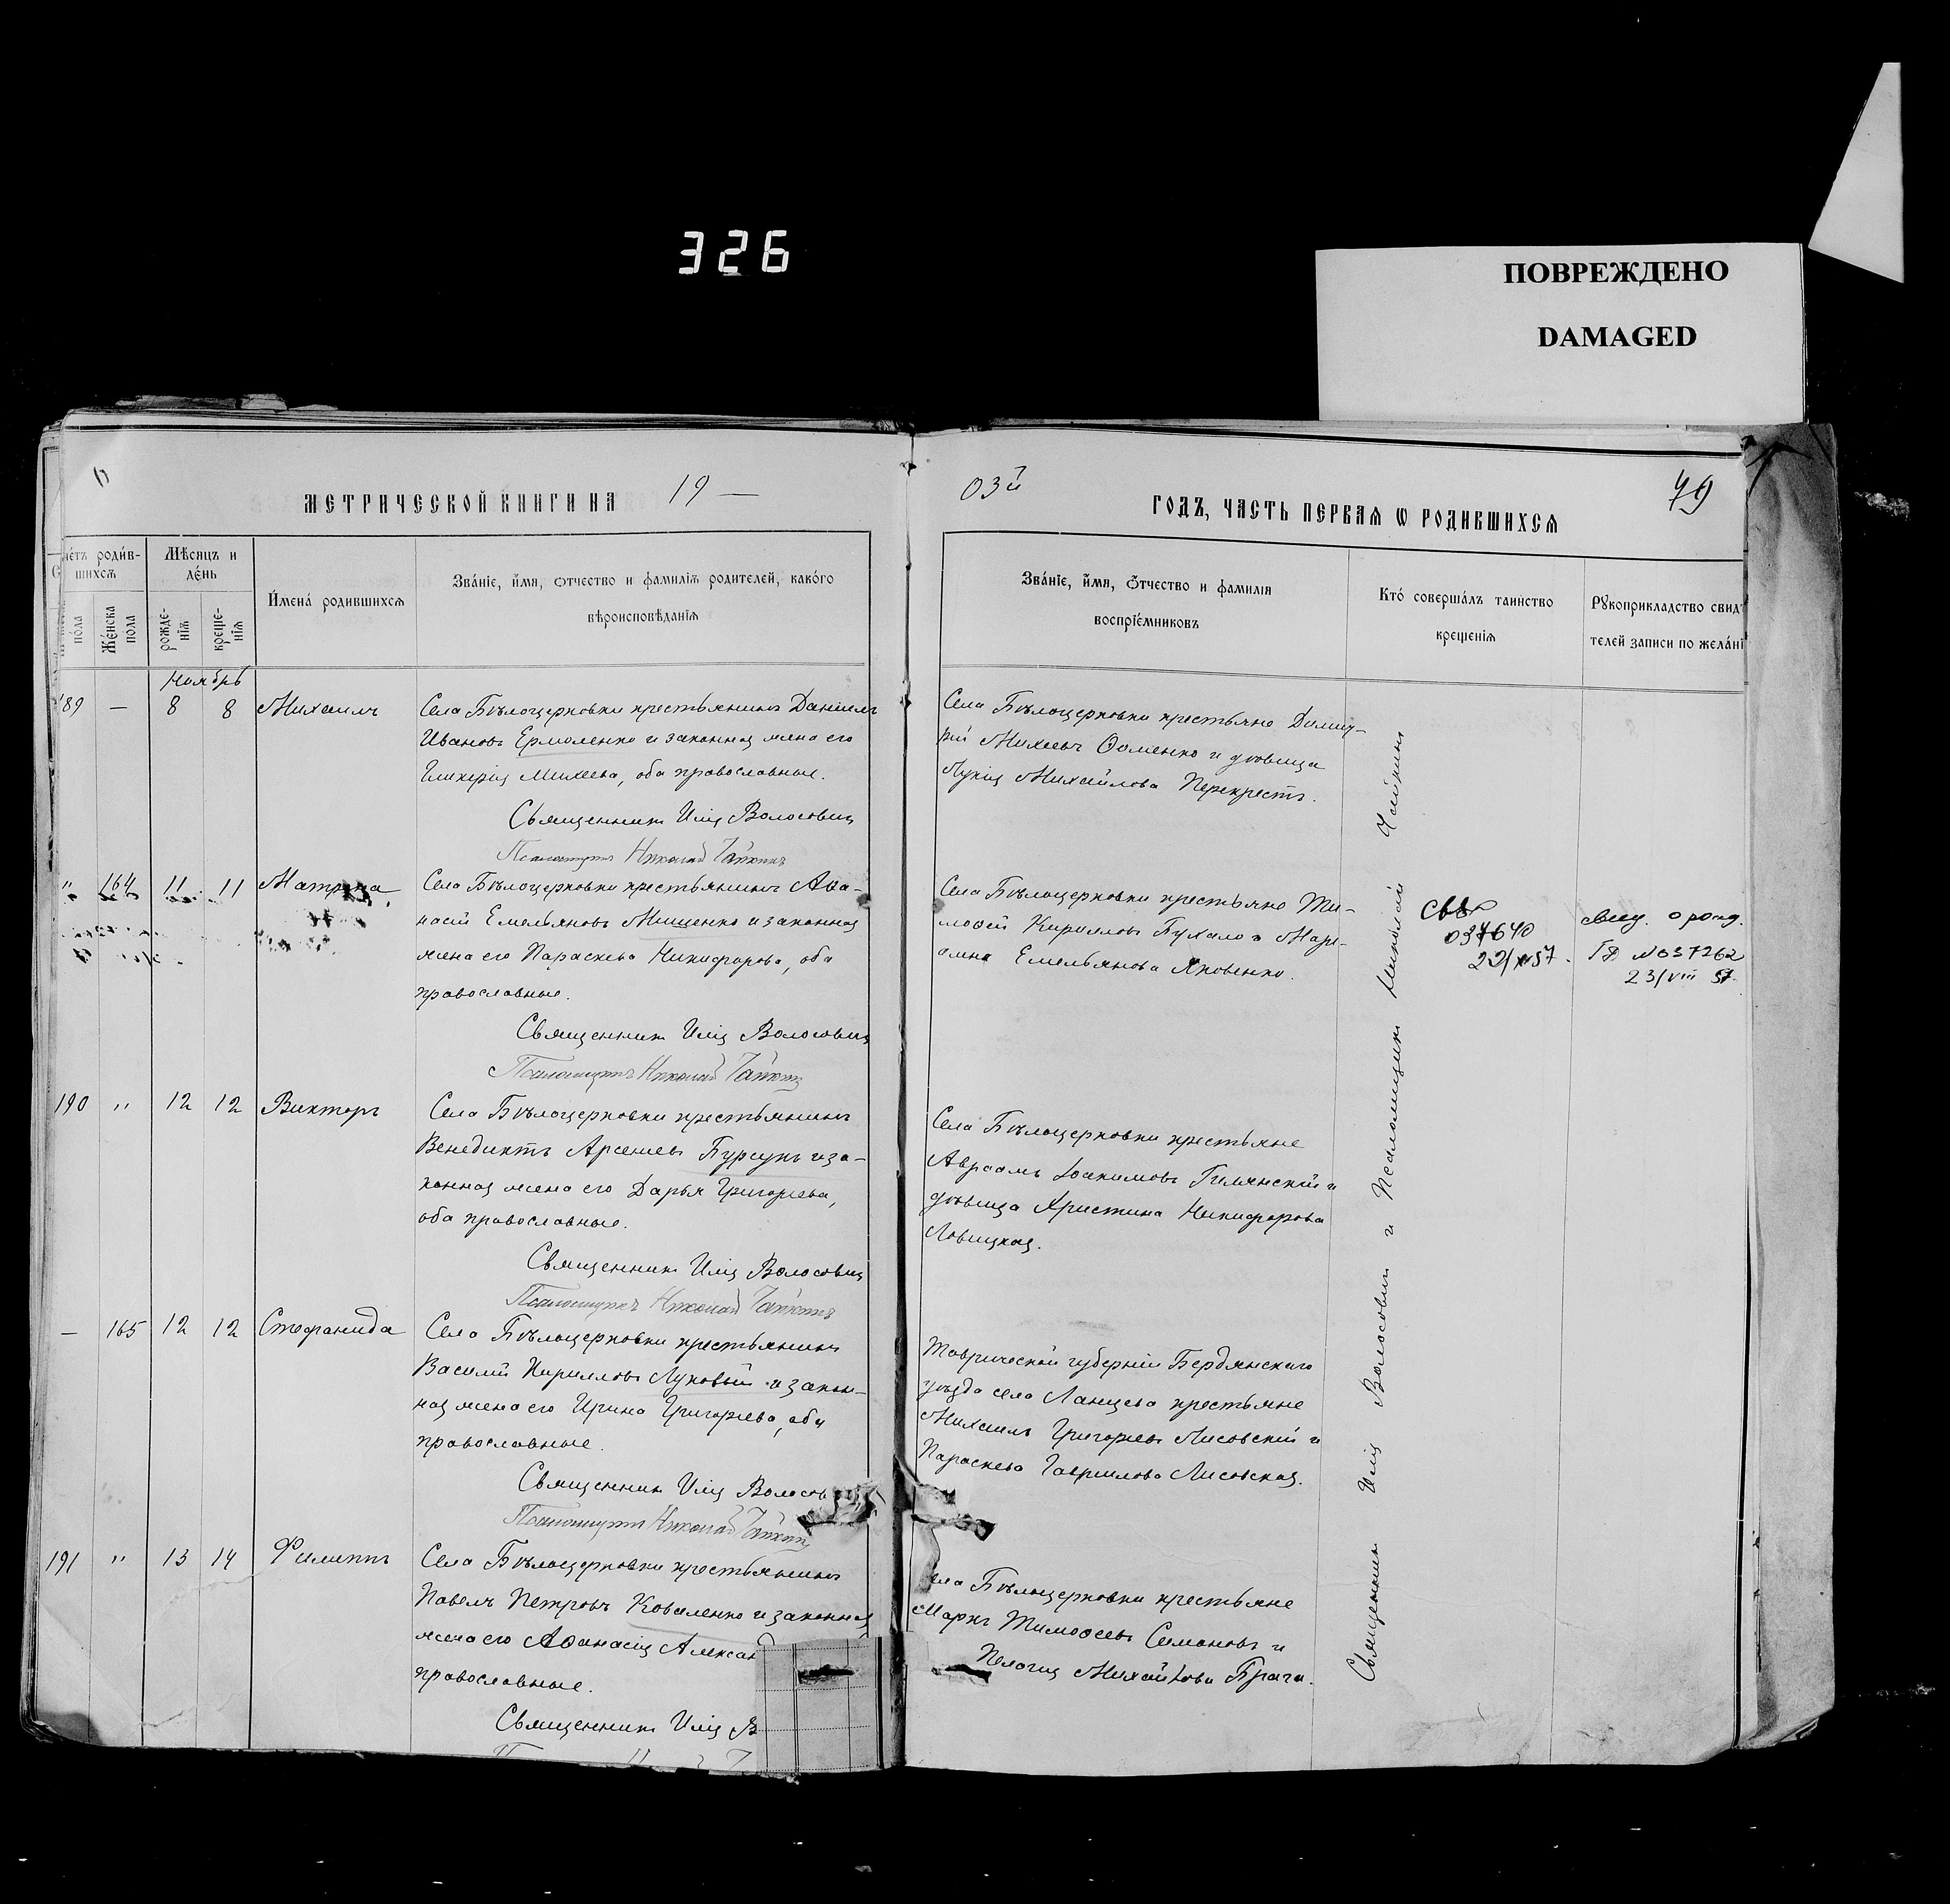 326
ПОВРЕЖДЕНО
DAMAGED
МЕТРИЧЕСКОЙ КНИГИ НА 19 —
03й ГОДЪ, ЧАСТЬ ПЕРВАЯ Ѡ РОДИВШИХСЯ
79
Счетъ родив-
шихся
пола
Женска
пола
Мѣсяцъ и
день
рожде-
нія
креще-
нія
Имена родившихся
Званіе, имя, отчество и фамилія родителей, какого
вѣроисповѣданія
Званіе, имя, отчество и фамилія
воспріемниковъ
Кто совершалъ таинство
крещенія
Рукоприкладство свидѣ
телей записи по желані
Ноябрь
189 — 8 8 Михаилъ
Села Бѣлоцерковки крестьянинъ Даніилъ
Ивановъ Ермоленко и законная жена его
Гликерія Михеева, оба православные.
Священникъ Илія Волосовичъ
Псаломщикъ Николай Чайкинъ
Села Бѣлоцерковки крестьяне Димит-
рій Михеевъ Ѳоменко и дѣвица
Лукія Михайлова Перекрестъ.
" 164 11 11 Матрона
Села Бѣлоцерковки крестьянинъ Аѳа-
насій Емельяновъ Мищенко и законная
жена его Параскева Никифорова, оба
православные.
Священникъ Илія Волосовичъ
Псаломщикъ Николай Чайкинъ
Села Бѣлоцерковки крестьяне Ти-
моѳей Кирилловъ Бухало и Мари-
амна Емельянова Яковенко.
037640
свид. о рожд.
№037262
23/VIII 57.
190 " 12 12 Викторъ
Села Бѣлоцерковки крестьянинъ
Венедиктъ Арсеніевъ Бурсукъ и за-
конная жена его Дарья Григорьева,
оба православные.
Священникъ Илія Волосовичъ
Псаломщикъ Николай Чайкинъ
Села Бѣлоцерковки крестьяне
Авраамъ Іоакимовъ Гилянскій и
дѣвица Христина Никифорова
Ловицкая.
— 165 12 12 Стефанида
Села Бѣлоцерковки крестьянинъ
Василій Кирилловъ Луковый и закон-
ная жена его Ирина Григорьева, оба
православные.
Священникъ Илія Волосов
Псаломщикъ Николай Чайкинъ
Таврической губерніи Бердянскаго
уѣзда села Ланцева крестьяне
Михаилъ Григорьевъ Лисовскій и
Параскева Гавриилова Лисовская.
191 " 13 14 Филиппъ
Села Бѣлоцерковки крестьянинъ
Павелъ Петровъ Коваленко и законная
жена его Аѳанасія Алексан
православные.
Священникъ Илія В
ела Бѣлоцерковки крестьяне
Маркъ Тимоѳеевъ Семеновъ и
Пелагія Михайлова Брага.
Священникъ Илія Волосовичъ и Псаломщикъ Николай Чайкинъ